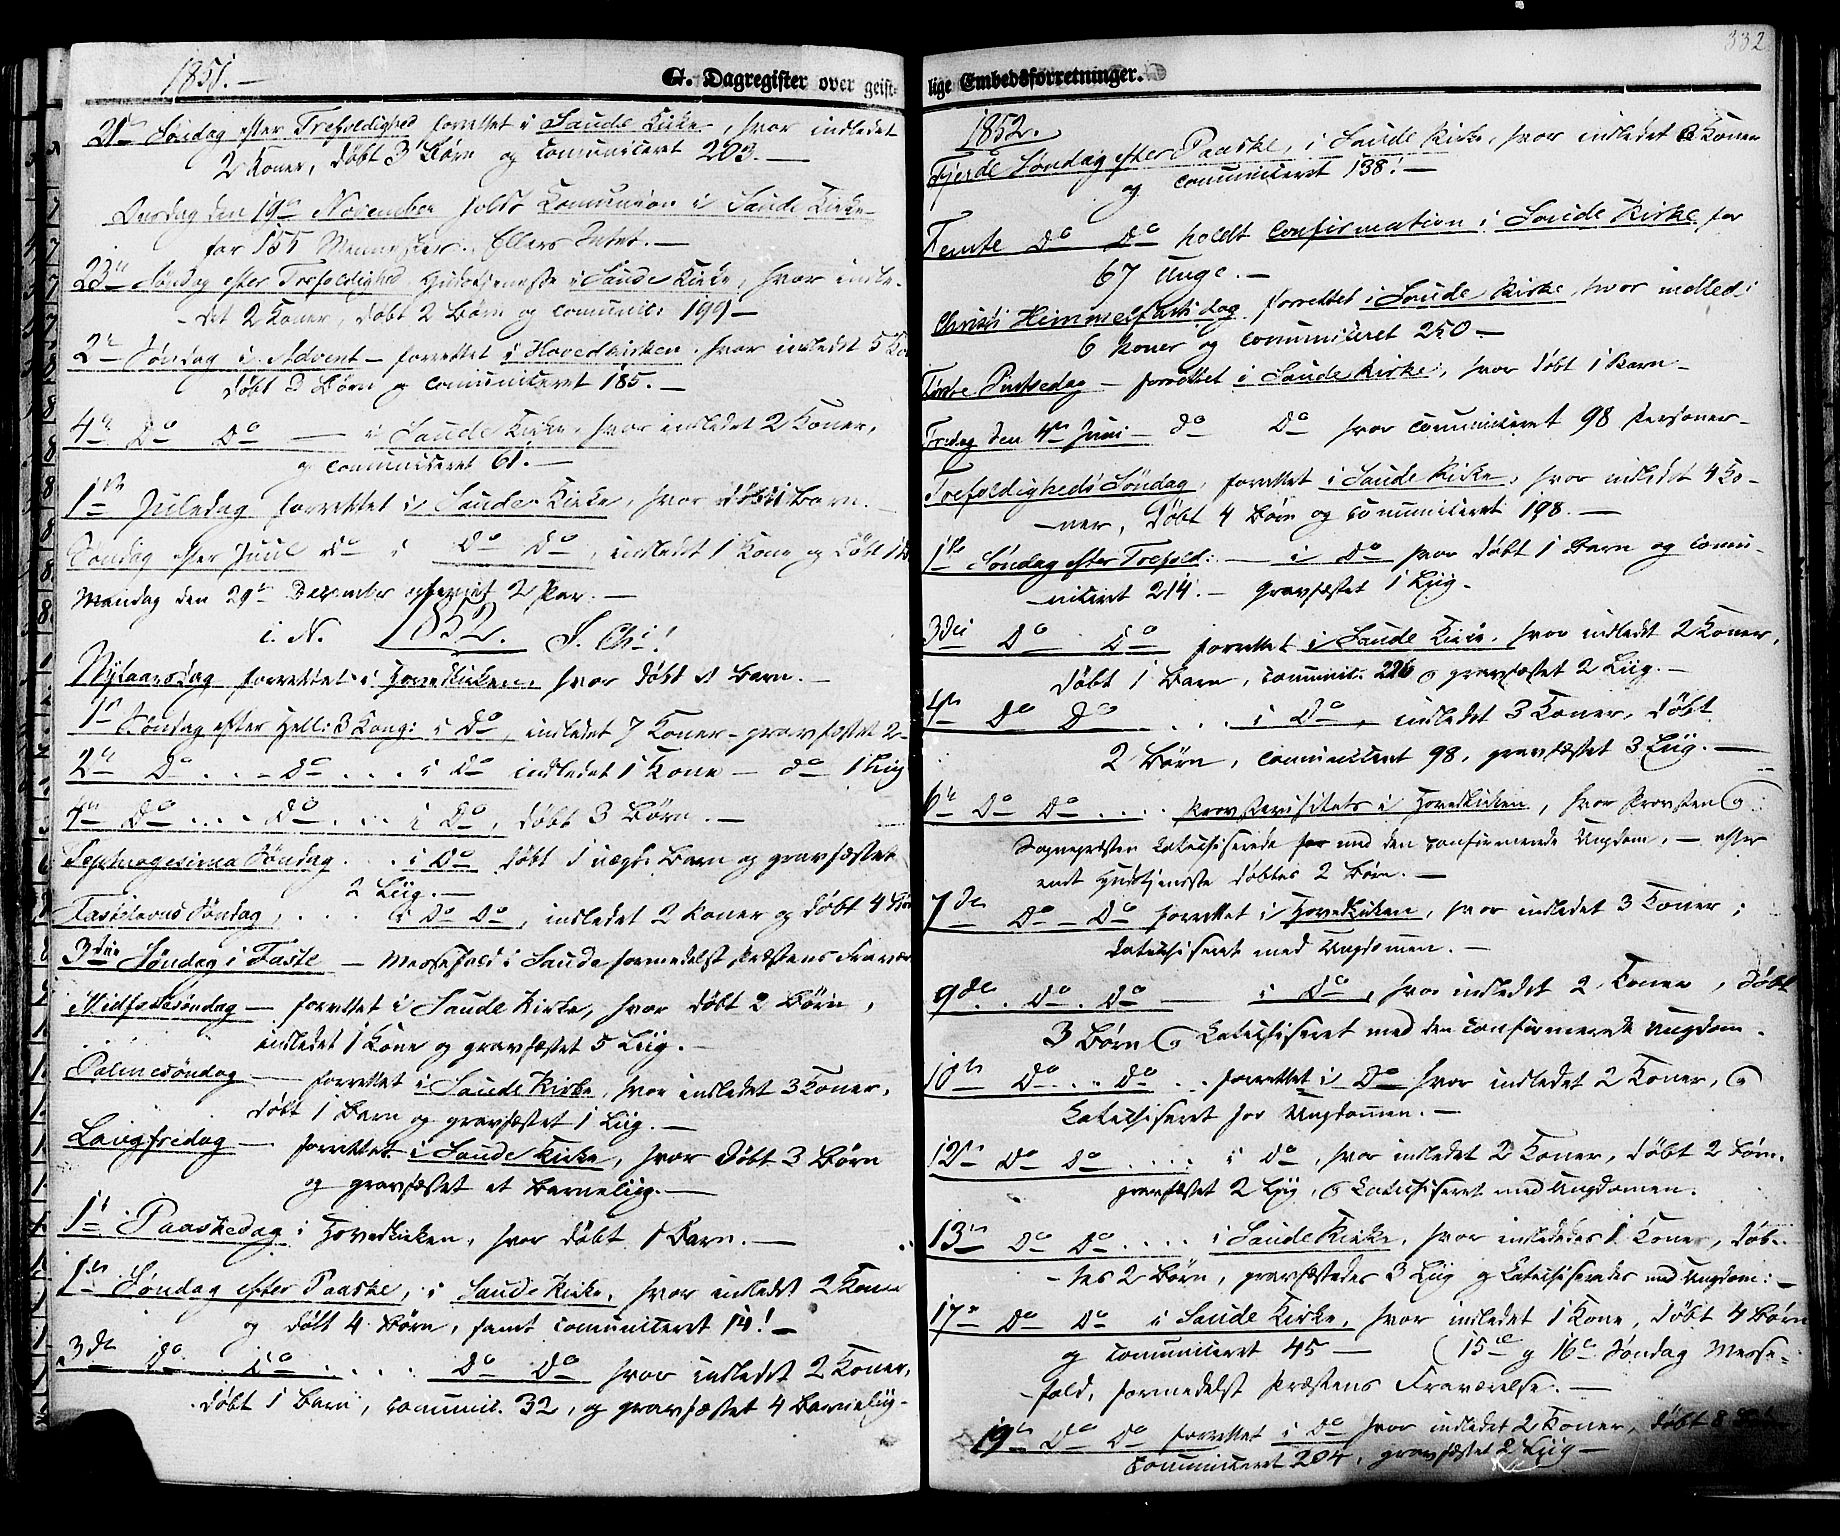 1851.-
G. Dagregister over geist-
21de Søndag efter Trefoldighed forrettet i Saude Kirke, hvor indledet
2 Koner, døbt 3 Børn og comuniceret 203.-
Onsdag den 19de November holdt Comunion i Saude Kirke
for 155 Mennesker. Ellers Intet.-
23de Søndag efter Trefoldighed, Gudstjeneste i Saude Kirke, hvor indle-
det 2 Koner, døbt 2 Børn og comunic: 199-
2de Søndag i Advent - forrettet i Hovedkirken, hvor indledet 5 Ko
døbt 2 Børn og comuniceret 185.-
4de Do Do - i Saude Kirke, hvor indledet 2 Koner,
og comuniceret 61.-
1ste Juledag forrettet i Saude Kirke, hvor døbt 1 Barn.
Søndag efter Juul do i Do Do, indledet 1 Kone og døbt 1
Mandag den 29de December 2 Par.-
i. N. 1852. J. Chi!
Nytaarsdag forrettet i Hovedkirken, hvor døbt et Barn.-
1ste Søndag efter Hell: 3 Kong: i Do, indledet 7 Koner - gravfæstet 2-
2de Do . . - Do . . . i Do indledet 1 Kone - do 1 Liig
4de Do . . . Do . . . i Do, døbt 3 Børn.-
Septuagesima Søndag . . i Do døbt 1 uægte Barn og gravfæstet
2 Liig.-
Fastelavns Søndag, . . . i Do Do, indledet 2 Koner og døbt 4
3die Søndag i Faste - Messefald i Saude formedelst Præstens Fravær
Midfastesøndag - forrettet i Saude Kirke, hvor døbt 2 Børn,
indledet 1 Kone og gravfæstet 5 Liig.-
Palmesøndag - forrettet i Saude Kirke, hvor indledet 3 Koner,
døbt 1 Barn og gravfæstet 1 Liig.-
Langfredag - forrettet i Saude Kirke, hvor døbt 3 Børn
og gravfæstet et Barneliig.-
1ste Paaskedag i Hovedkirken, hvor døbt 1 Barn.-
1ste Søndag efter Paaske, i Saude Kirke, hvor indledt 2 Koner
og døbt 4 Børn, samt comuniceret 14!-
3die do Do . . . . Do Do hvor indledet 2 Koner,
døbt 1 Barn, communic. 32, og gravfæstet 4 Barneliig-
332
lige Embedsforretninger.
1852.
Fjerde Søndag efter Paaske, i Saude Kirke, hvor indledet Koner
og comuniceret 138!-
Femte Do Do holdt Confirmation i Saude Kirke for
67 Unge.-
Christi Himmelfarts dag forrettet i Saude Kirke, hvor indled:
6 Koner og comuniceret 250-
Første Pintsedag - forrettet i Saude Kirke, hvor døbt 1 Barn-
Fredag den 4de Juni - do Do hvor comuniceret 98 Personer-
Trefoldigheds Søndag, forrettet i Saude Kirke, hvor indledet 4 Ko-
-ner, døbt 4 Børn og comuniceret 198.-
1ste Søndag efter Trefold: - i Do hvor døbt 1 Barn og comu-
-niceret 214.- gravfæstet 1 Liig-
3die Do Do forrettet i Saude Kirke, hvor indledt 2 Koner,
døbt 1 Barn, communic. 226 og gravfæstet 2 Liig.-
4de Do Do . . . i Do, indledet 3 Koner, døbt
2 Børn, comuniceret 98, gravfæstet 3 Liig.-
6te Do Do . . . Provstevisitats i Hovedkirken, hvor Provsten og
Sognepræsten Catechiserede med den confirmerede Ungdom, - efter
endt Gudstjeneste døbtes 2 Børn.-
7de Do - Do forrettet i Hovedkirken, hvor indledet 3 Koner;
Catechiseret med Ungdommen.-
9de . Do . Do - i Do, hvor indledet 2 Koner, døbt
3 Børn og Catechiseret med den confirmerede Ungdom.
10de Do . . Do . . forrettet i Do hvor indledet 2 Koner, og
Catechiseret for Ungdommen.-
12te Do Do . . . . i Do, hvor indledet 2 Koner, døbt 2 Børn,
gravfæstet 2 Liig, og Catechiseret med Ungdomen.
13de Do Do . . . . i Saude Kirke, hvor indledes 1 Koner, døb-
-tes 2 Børn, gravfæstedes 3 Liig og Catechiseredes med Ungdom:-
17de Do Do i Saude Kirke, hvor indledet 1 Kone, døbt 4 Børn
og comuniceret 45 - (15de og 16de Søndag Messe-
-fald, formedelst Præstens Fraværelse.-
19de Do Do forrettet i Do hvor indledet 2 Koner, døbt 8
Communiceret 204, gravfæstet 2 Liig-